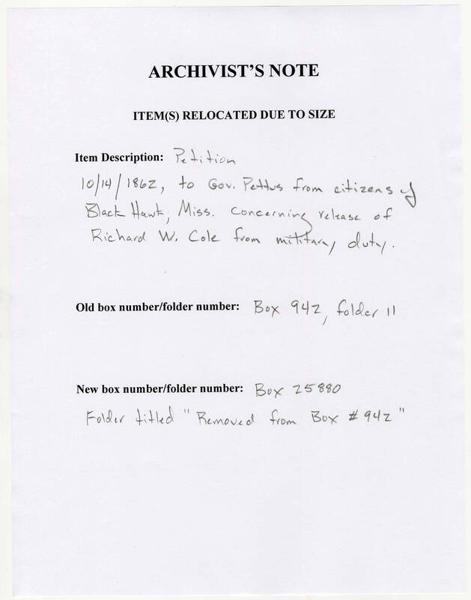 ARCHIVIST'S NOTE
ITEM(S) RELOCATED DUE TO SIZE
Item Description: Petition
10/14/1862, to Gov. Pettus from citizens of
Black Hawk, Miss. concerning release of
Richard W. Cole from military duty.
Old box number/folder number: Box 942, folder 11
New box number/folder number: Box 25880
Folder titled "Removed from Box #942"